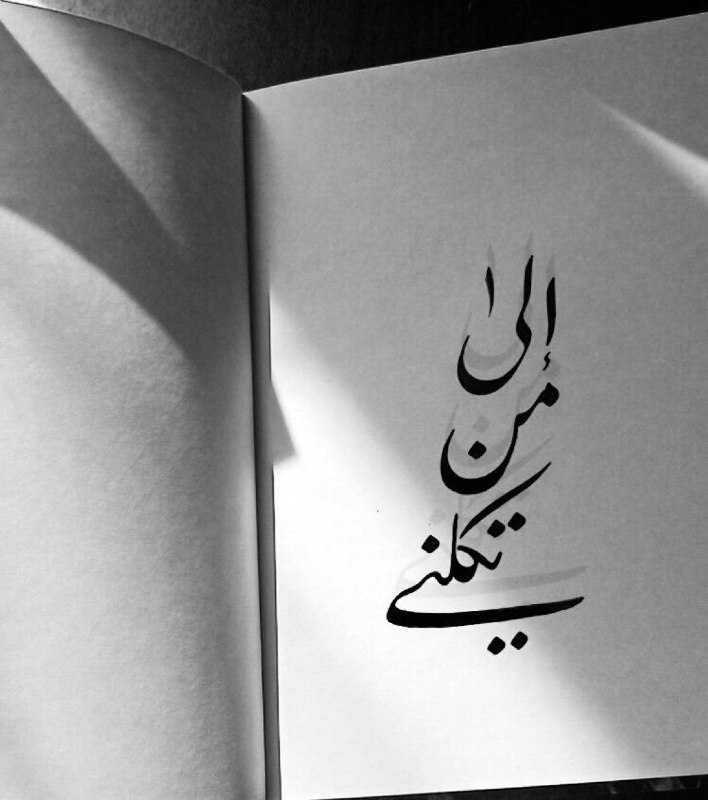 إلى
من
تكلني